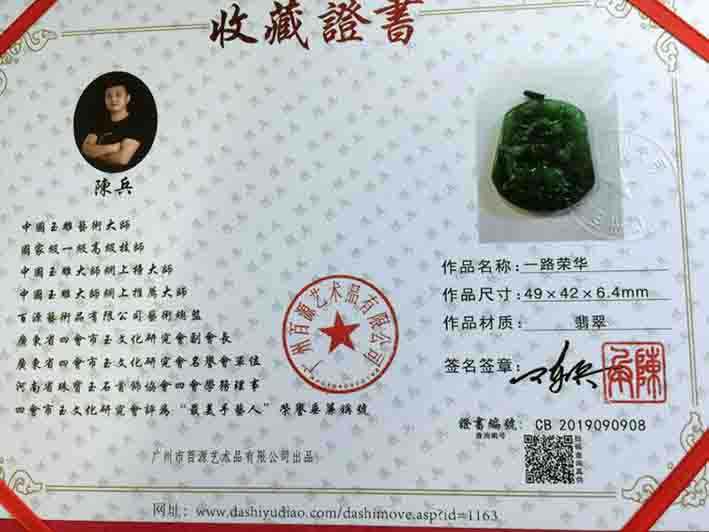 收藏證書
陳兵
中國玉雕藝術大師
國家級一級高級技師
中國玉雕大師網上榜大師
中國玉雕大師網上推薦大師
百源藝術品有限公司藝術總監
廣東省四會市玉文化研究會副會長
廣東省四會市玉文化研究會名譽會單位
河南省珠寶玉石首飾協會四會學務理事
四會市玉文化研究會評為“最美手藝人”榮譽稱號
广州市百源艺术品有限公司出品
广州百源艺术品有限公司
作品名称：一路荣华
作品尺寸：49×42×6.4mm
作品材质：翡翠
签名签章：
陳
證書編號：CB 2019090908
查询账号
扫码查询真伪
网址：www.dashiyudiao.com/dashimove.asp?id=1163